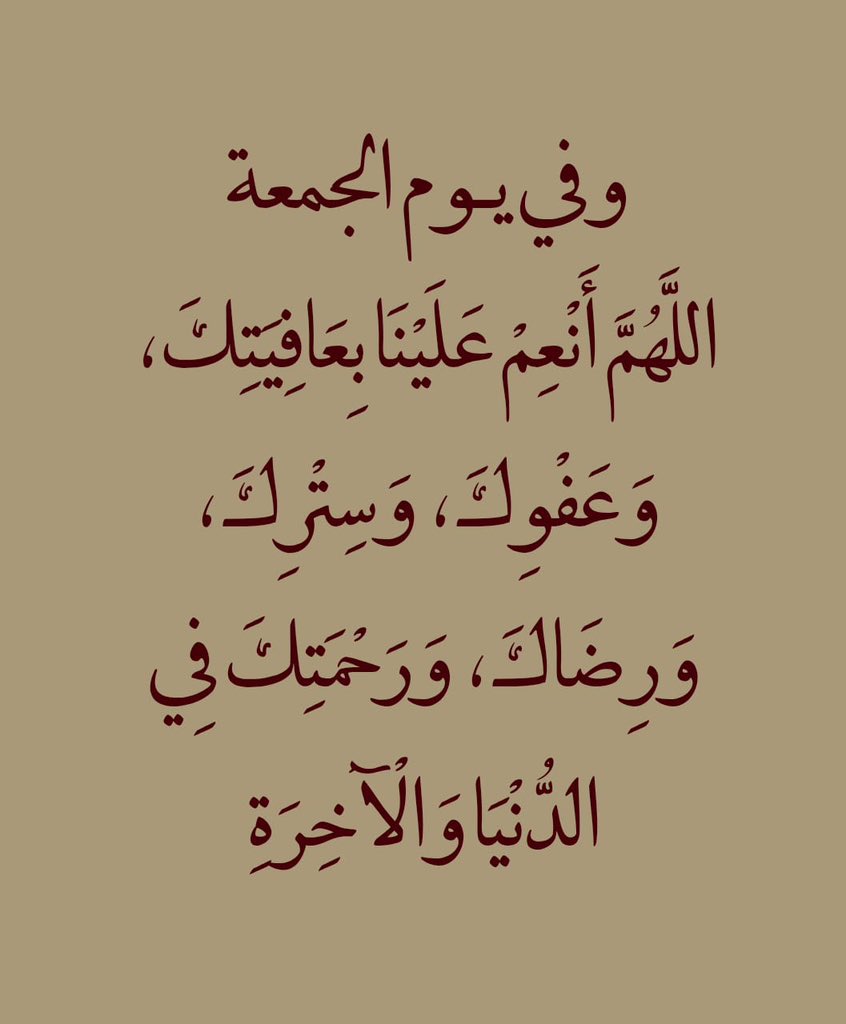 وفي يـوم الجمعة
اللَّهُمَّ أَنْعِمْ عَلَيْنَا بِعَافِيَتِكَ،
وَعَفْوِكَ، وَسِتْرِكَ،
وَرِضَاكَ، وَرَحْمَتِكَ فِي
الدُّنْيَا وَالْآخِرَةِ